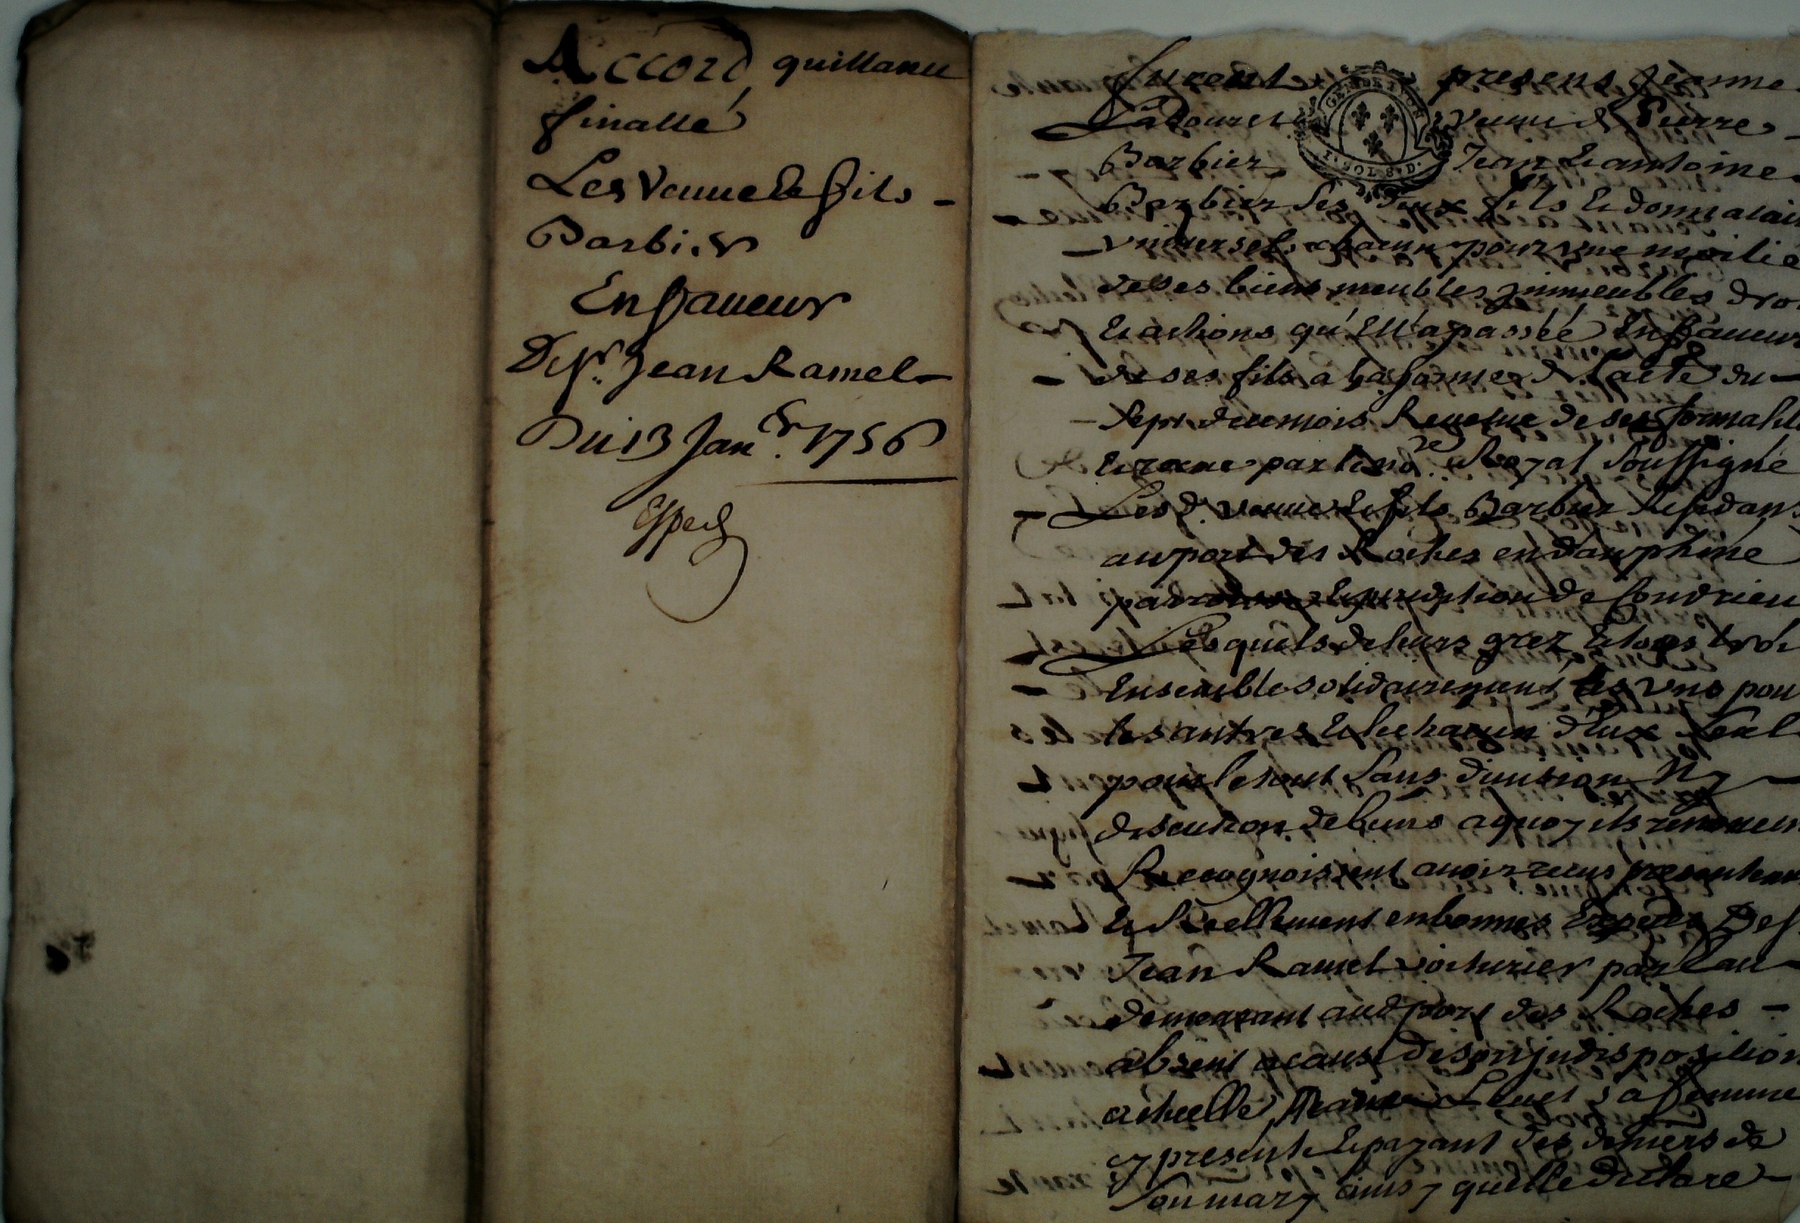 Accord quittance
finalle
Les Veuue & fils
Barbier
En faueur
De Sr. Jean Ramel
Du 13 Janer. 1756
Furent presens Jeanne
veuue de Pierre
Barbier Jean & antoine
Barbier ses deux fils & donnatai
vniuersels chacun pour vne moitié
de ses biens meubles jmmeubles dro
& actions qu'Ell'a passée En faueur
de ses fils a la forme de l'acte du
sept de ce mois Reuetue de ses formalit
& receue par le nore Royal soussigné
Les d. veuue & fils Barbier Residans
au port des Roches en dauphiné
parroisse & de Condrieu
Lesquels de leurs grez & tous troi
Ensemble solidairement les vns pou
les autres & le chacun d'Eux seul
pour le tout sans diuision Ny
discution de biens a quoy ils renoncen
Recognoissent auoir receus presentem
& Reellement en bonnes Especes De s.
Jean Ramel voiturier par Eau
demeurant aud port des Roches
absent a cause de son jndisposition
a icelle sa femme
cy presente & payant des deniers de
son mary ainsy qu'elle declare